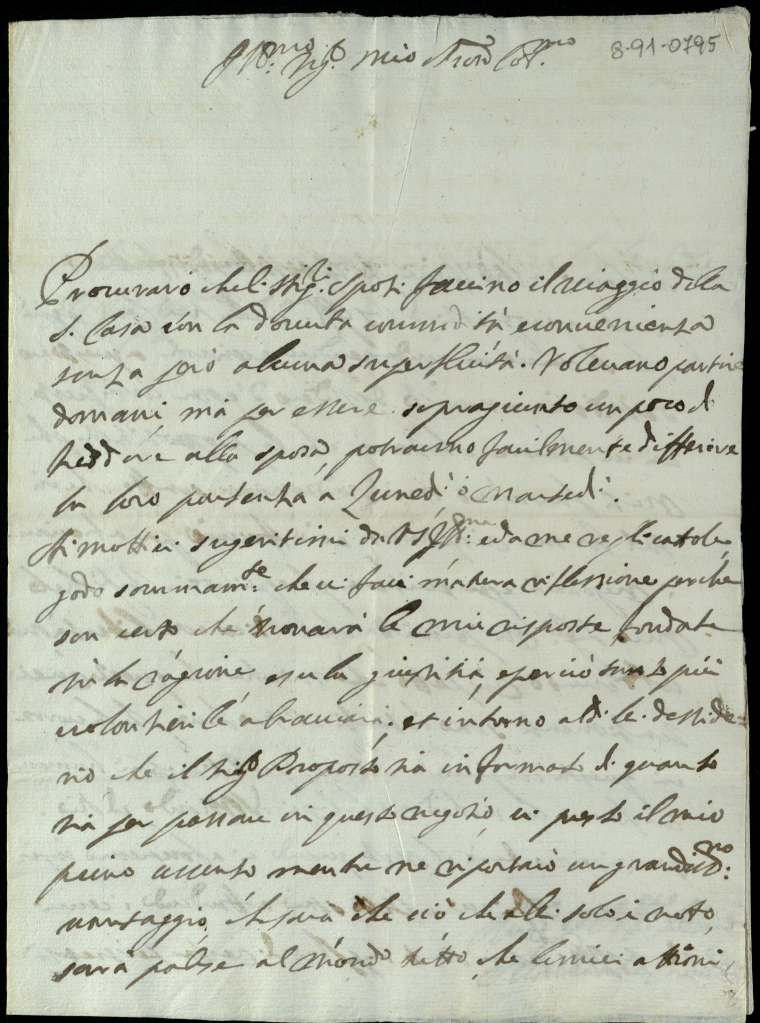 Ill.mo Sig.r mio Pron Col.mo 8-91-0795
Procurarò che li Sig.ri Sposi faccino il viaggio della
S. Casa con la dovuta commodità e convenienza
senza però alcuna superfluità. Volevano partire
domani, mà per essere sopragiunto un poco di
freddore alla sposa, potranno facilmente differire
la loro partenza a Lunedì ò Martedì.
Ai mottivi sugeritimi da VS Ill.ma e da me replicatole,
godo sommam.te che vi facci matura riflessione perche
son certo che trovarà le mie risposte fondate
sù la ragione e su la giustitia, e perciò tanto più
volontieri le abracciarà; et intorno al di lei desside=
rio che il Sig.r Proposto sia informato di quanto
sia per passare in questo negotio, vi presto il mio
pieno assenso mentre ne riportarò un grandiss.mo
vantaggio, che sarà che ciò che à lei solo è noto,
sarà palese al Mondo tutto, che le mie attioni,